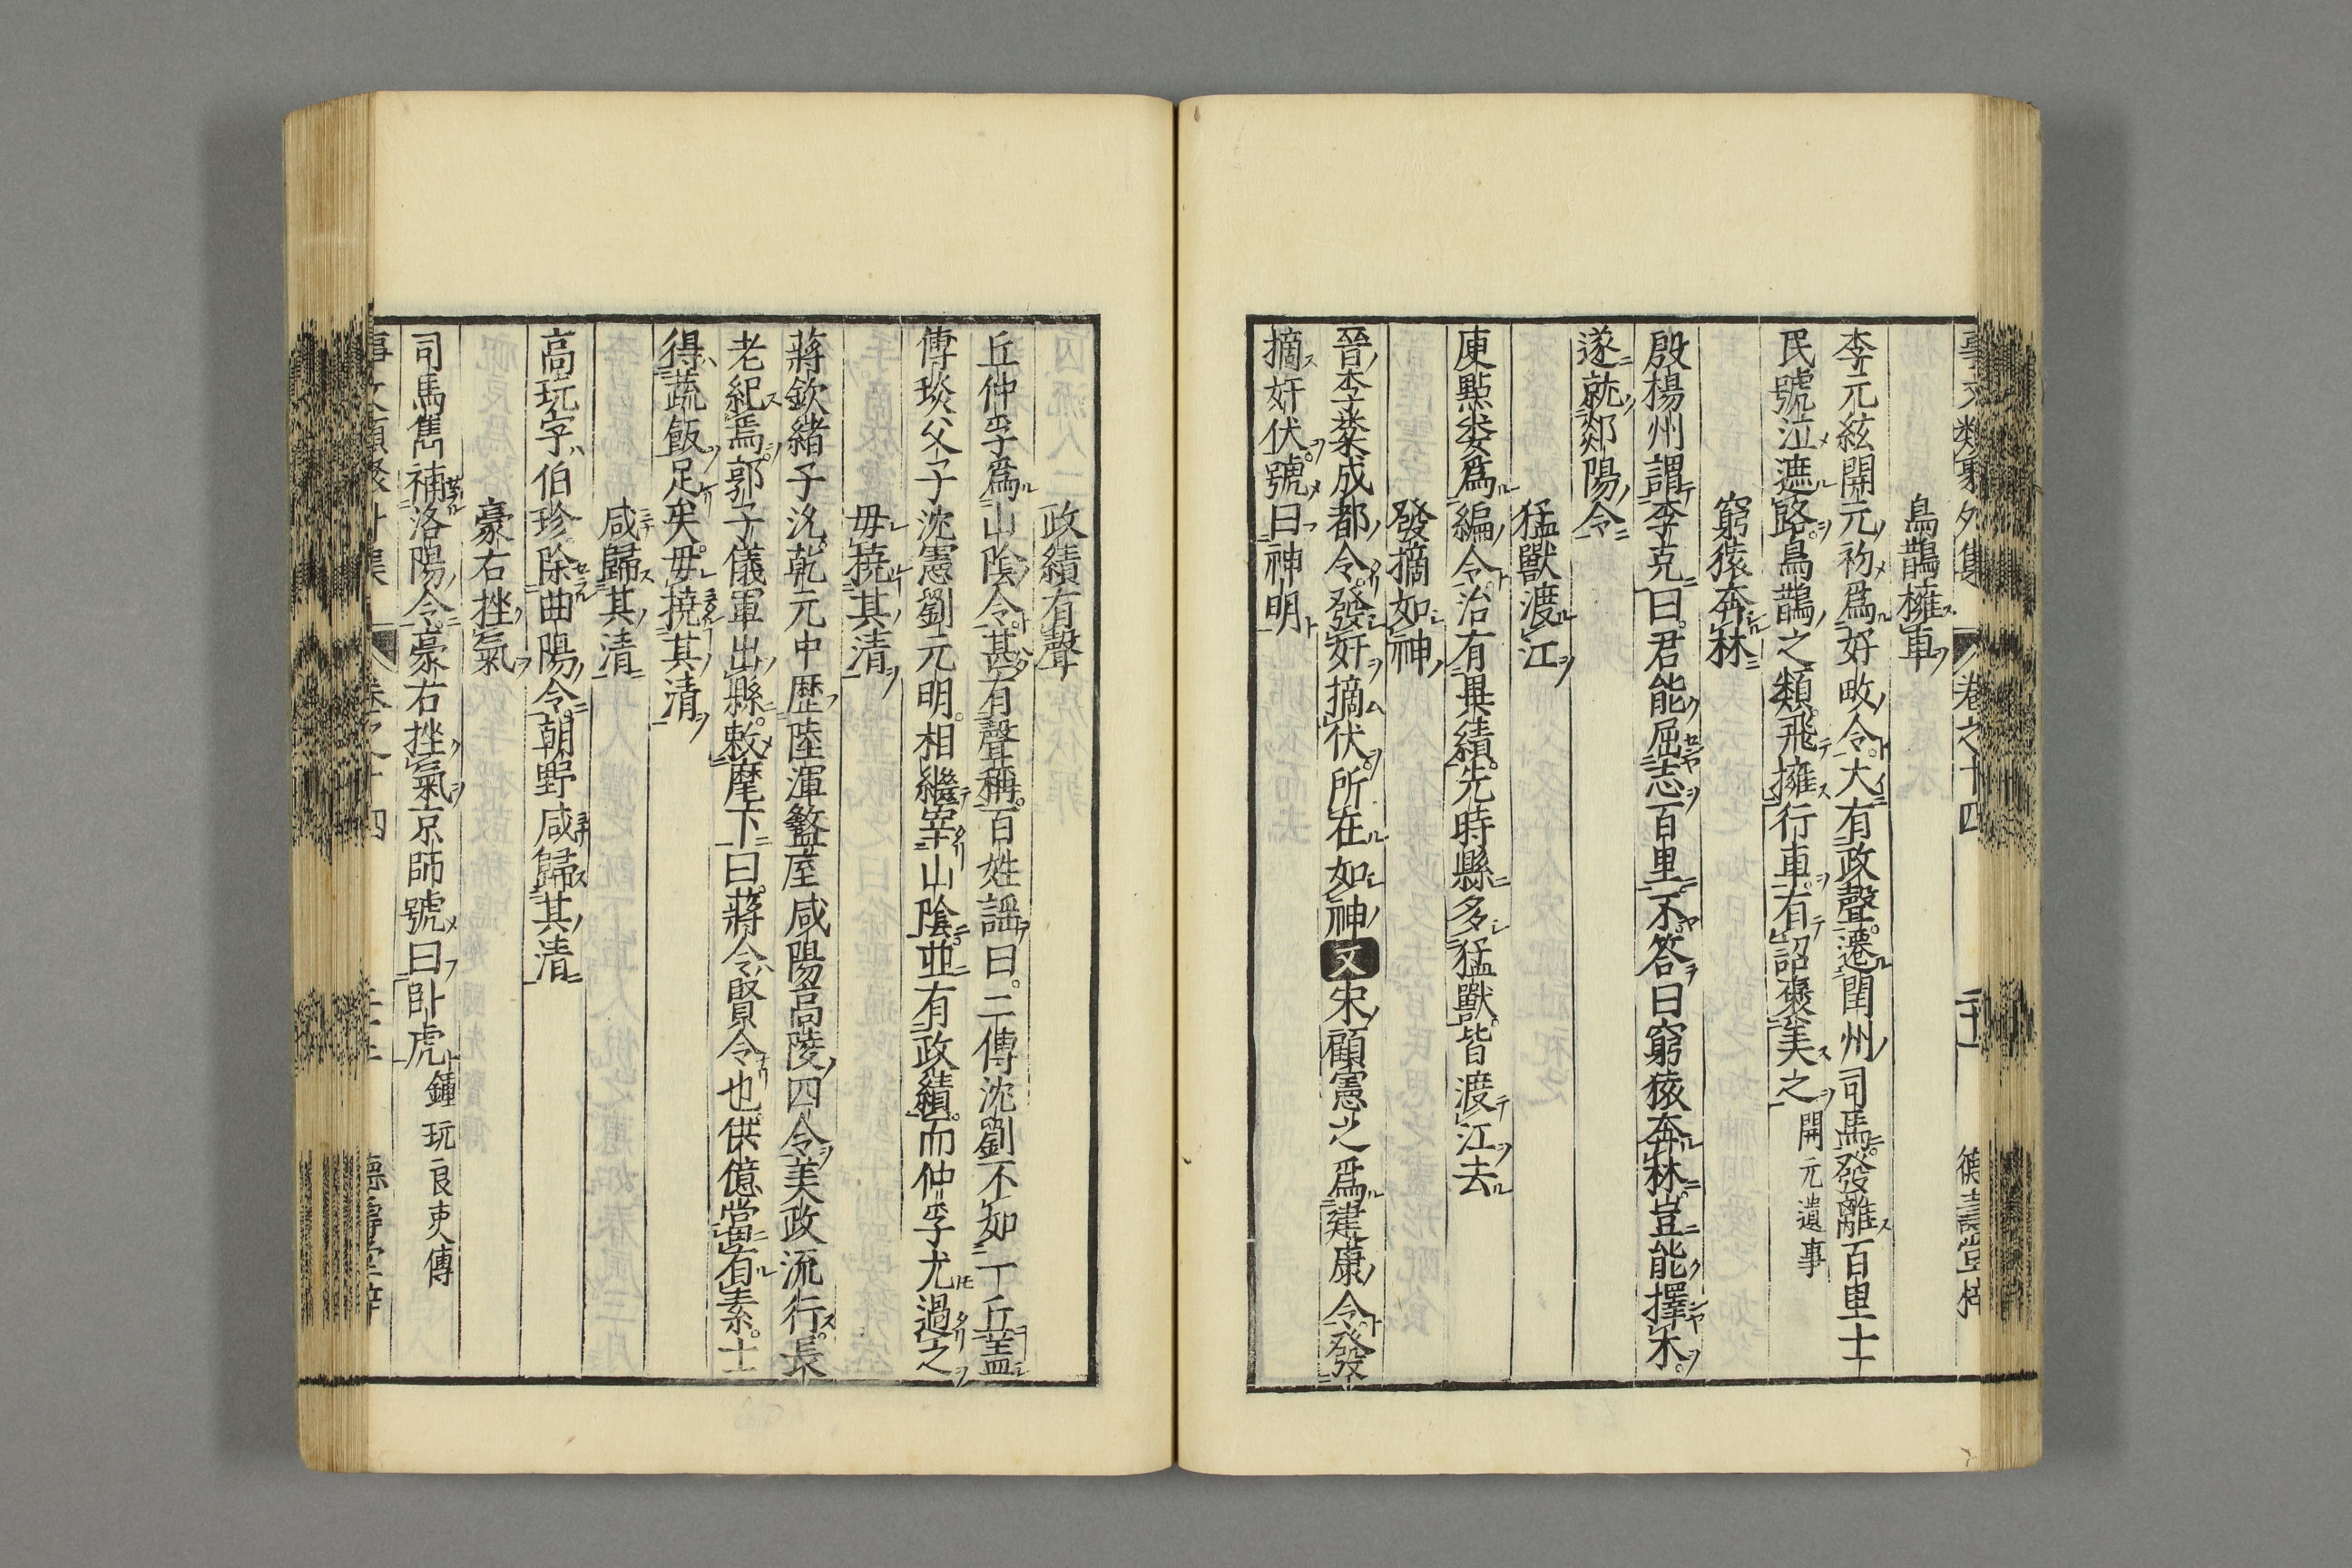 事文類聚外集 卷之十四
烏鵲擁車
李元絃開元初爲好畤令大有政聲遷閏州司馬發離百里士
民號泣遮路烏鵲之類飛擁行車有詔褒美之開元遺事
窮猿奔林
殷楊州謂李克曰君能屈志百里不答曰窮猿奔林豈能擇木
遂就郯陽令
猛獸渡江
庾黔婁爲編令治有異績先時縣多猛獸皆渡江去
發摘如神
晉李棻成都令發奸摘伏所在如神又宋顧憲之爲建康令發
摘奸伏號曰神明
政績有聲
丘仲孚爲山陰令甚有聲稱百姓謡曰二傅沈劉不如一丘盖
傅琰父子沈憲劉元明相繼宰山陰並有政績而仲孚尤過之
毋撓其清
蔣欽緒子沇乾元中歴陸渾盩厔咸陽高陵四令美政流行長
老紀焉郭子儀軍出縣敕麾下曰蔣令賢令也供億當有素士
得蔬飯足矣毋撓其清
咸歸其清
高玩字伯珍除曲陽令朝野咸歸其清
豪右挫氣
司馬雋補洛陽令豪右挫氣京師號曰卧虎鍾玩良吏傳